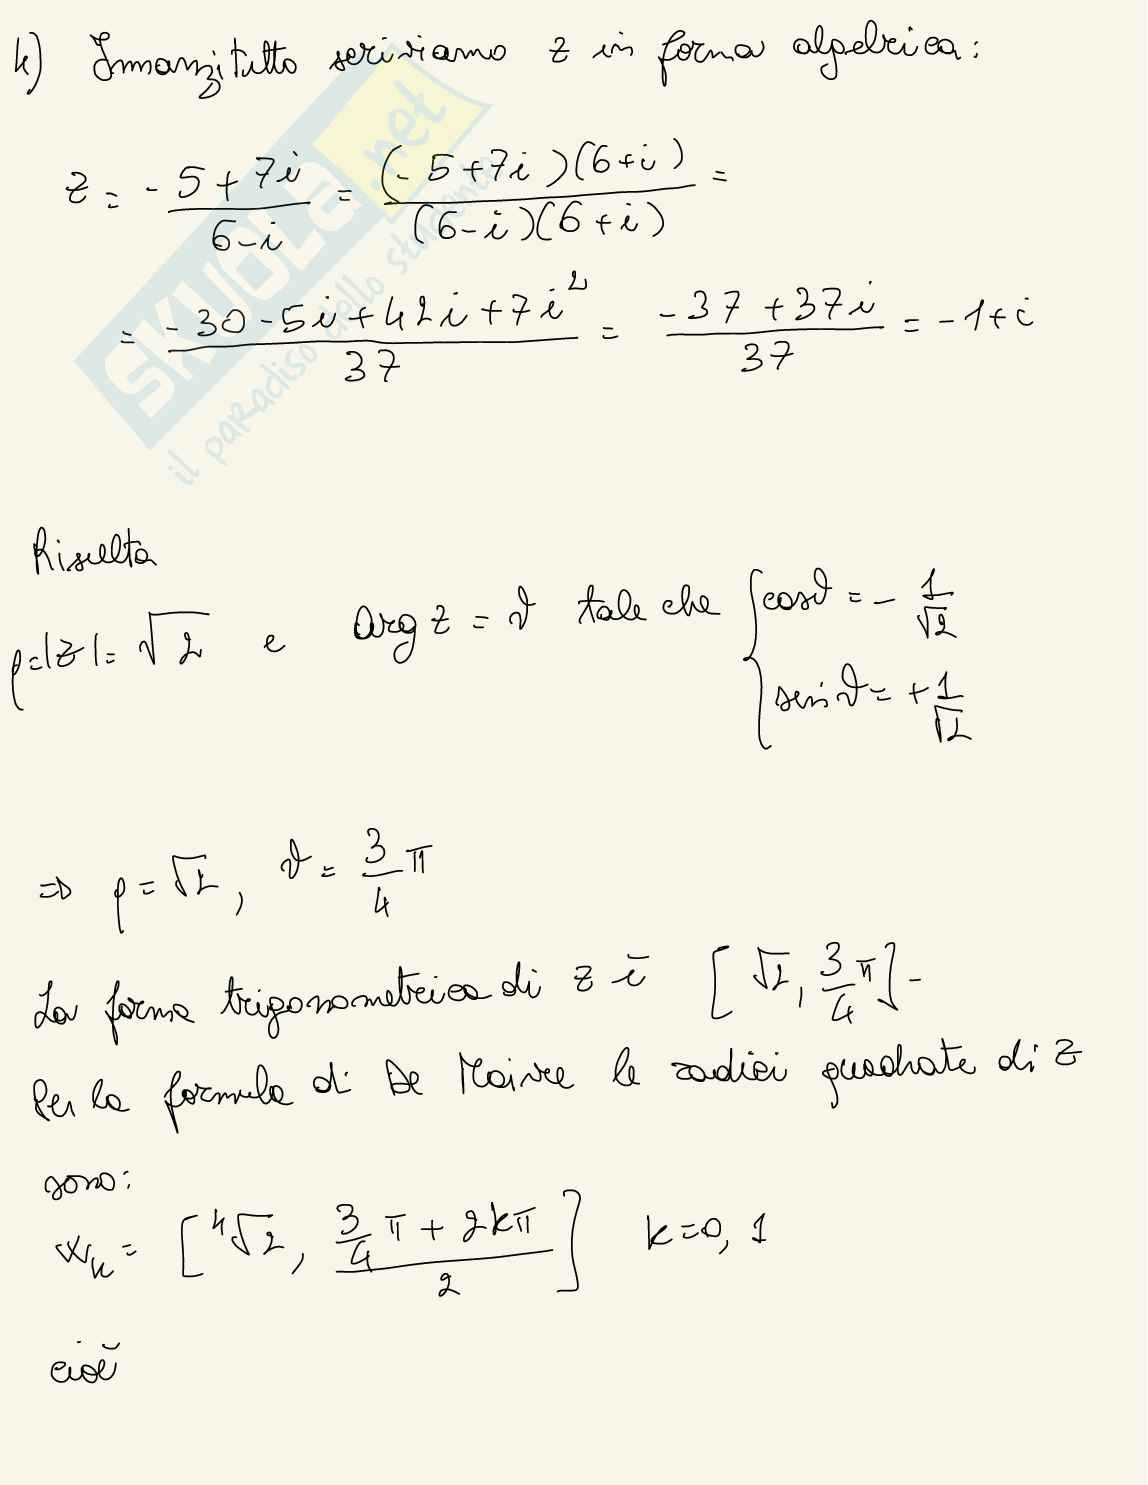 4) Innanzitutto scriviamo z in forma algebrica:
z = -5+7i / 6-i = (-5+7i)(6+i) / (6-i)(6+i) =
= -30-5i+42i+7i² / 37 = -37+37i / 37 = -1+i
SKUOLA.net
il paradiso dello studente
Risulta
ρ=|z|= √2 e arg z = ϑ tale che { cosϑ = - 1/√2
sinϑ = + 1/√2
⇒ ρ = √2, ϑ = 3/4 π
La forma trigonometrica di z è [√2, 3/4 π].
Per la formula di De Moivre le radici quadrate di z
sono:
w_k = [⁴√2, (3/4 π + 2kπ) / 2] k=0, 1
cioè